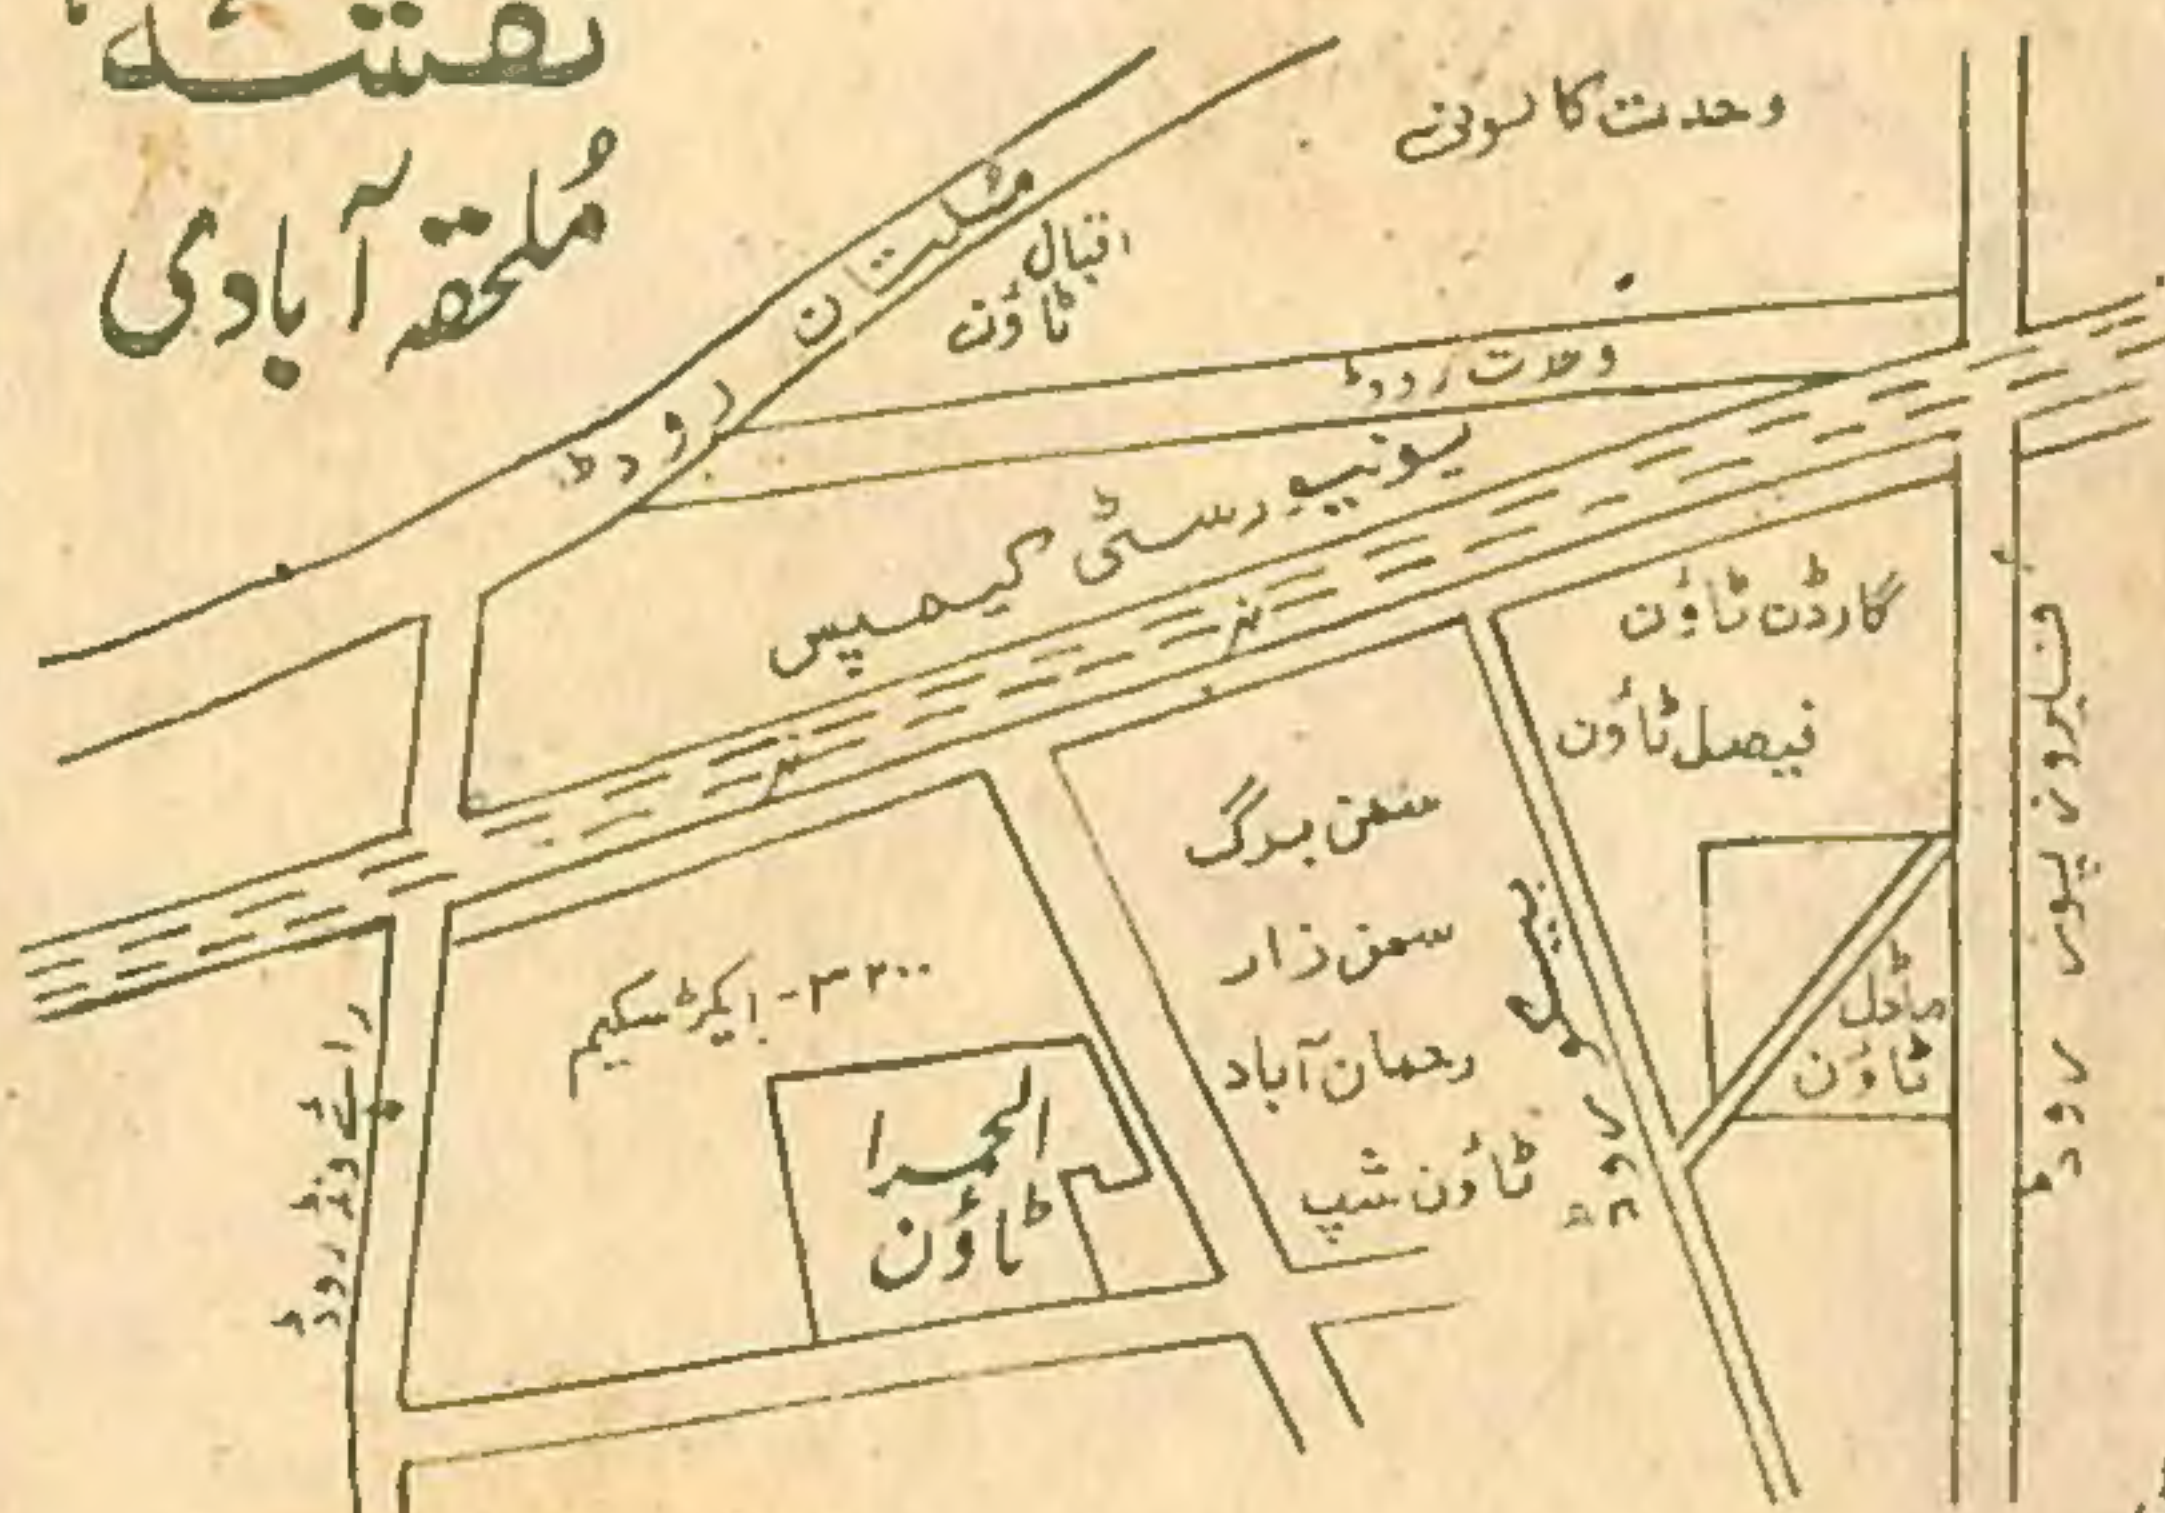 نقشہ
مُلحقہ آبادی
وحدت کالونی
ملتان روڈ
اقبال
ٹاؤن
وحدت روڈ
یونیورسٹی کیمپس
نہر
نہر
گارڈن ٹاؤن
فیصل ٹاؤن
فیروز پور روڈ
ماڈل
ٹاؤن
سمن برگ
سمن زار
رحمان آباد
ٹاؤن شپ
روڈ
۳۲۰۰-ایکڑ سکیم
الحمرا
ٹاؤن
رائے ونڈ روڈ